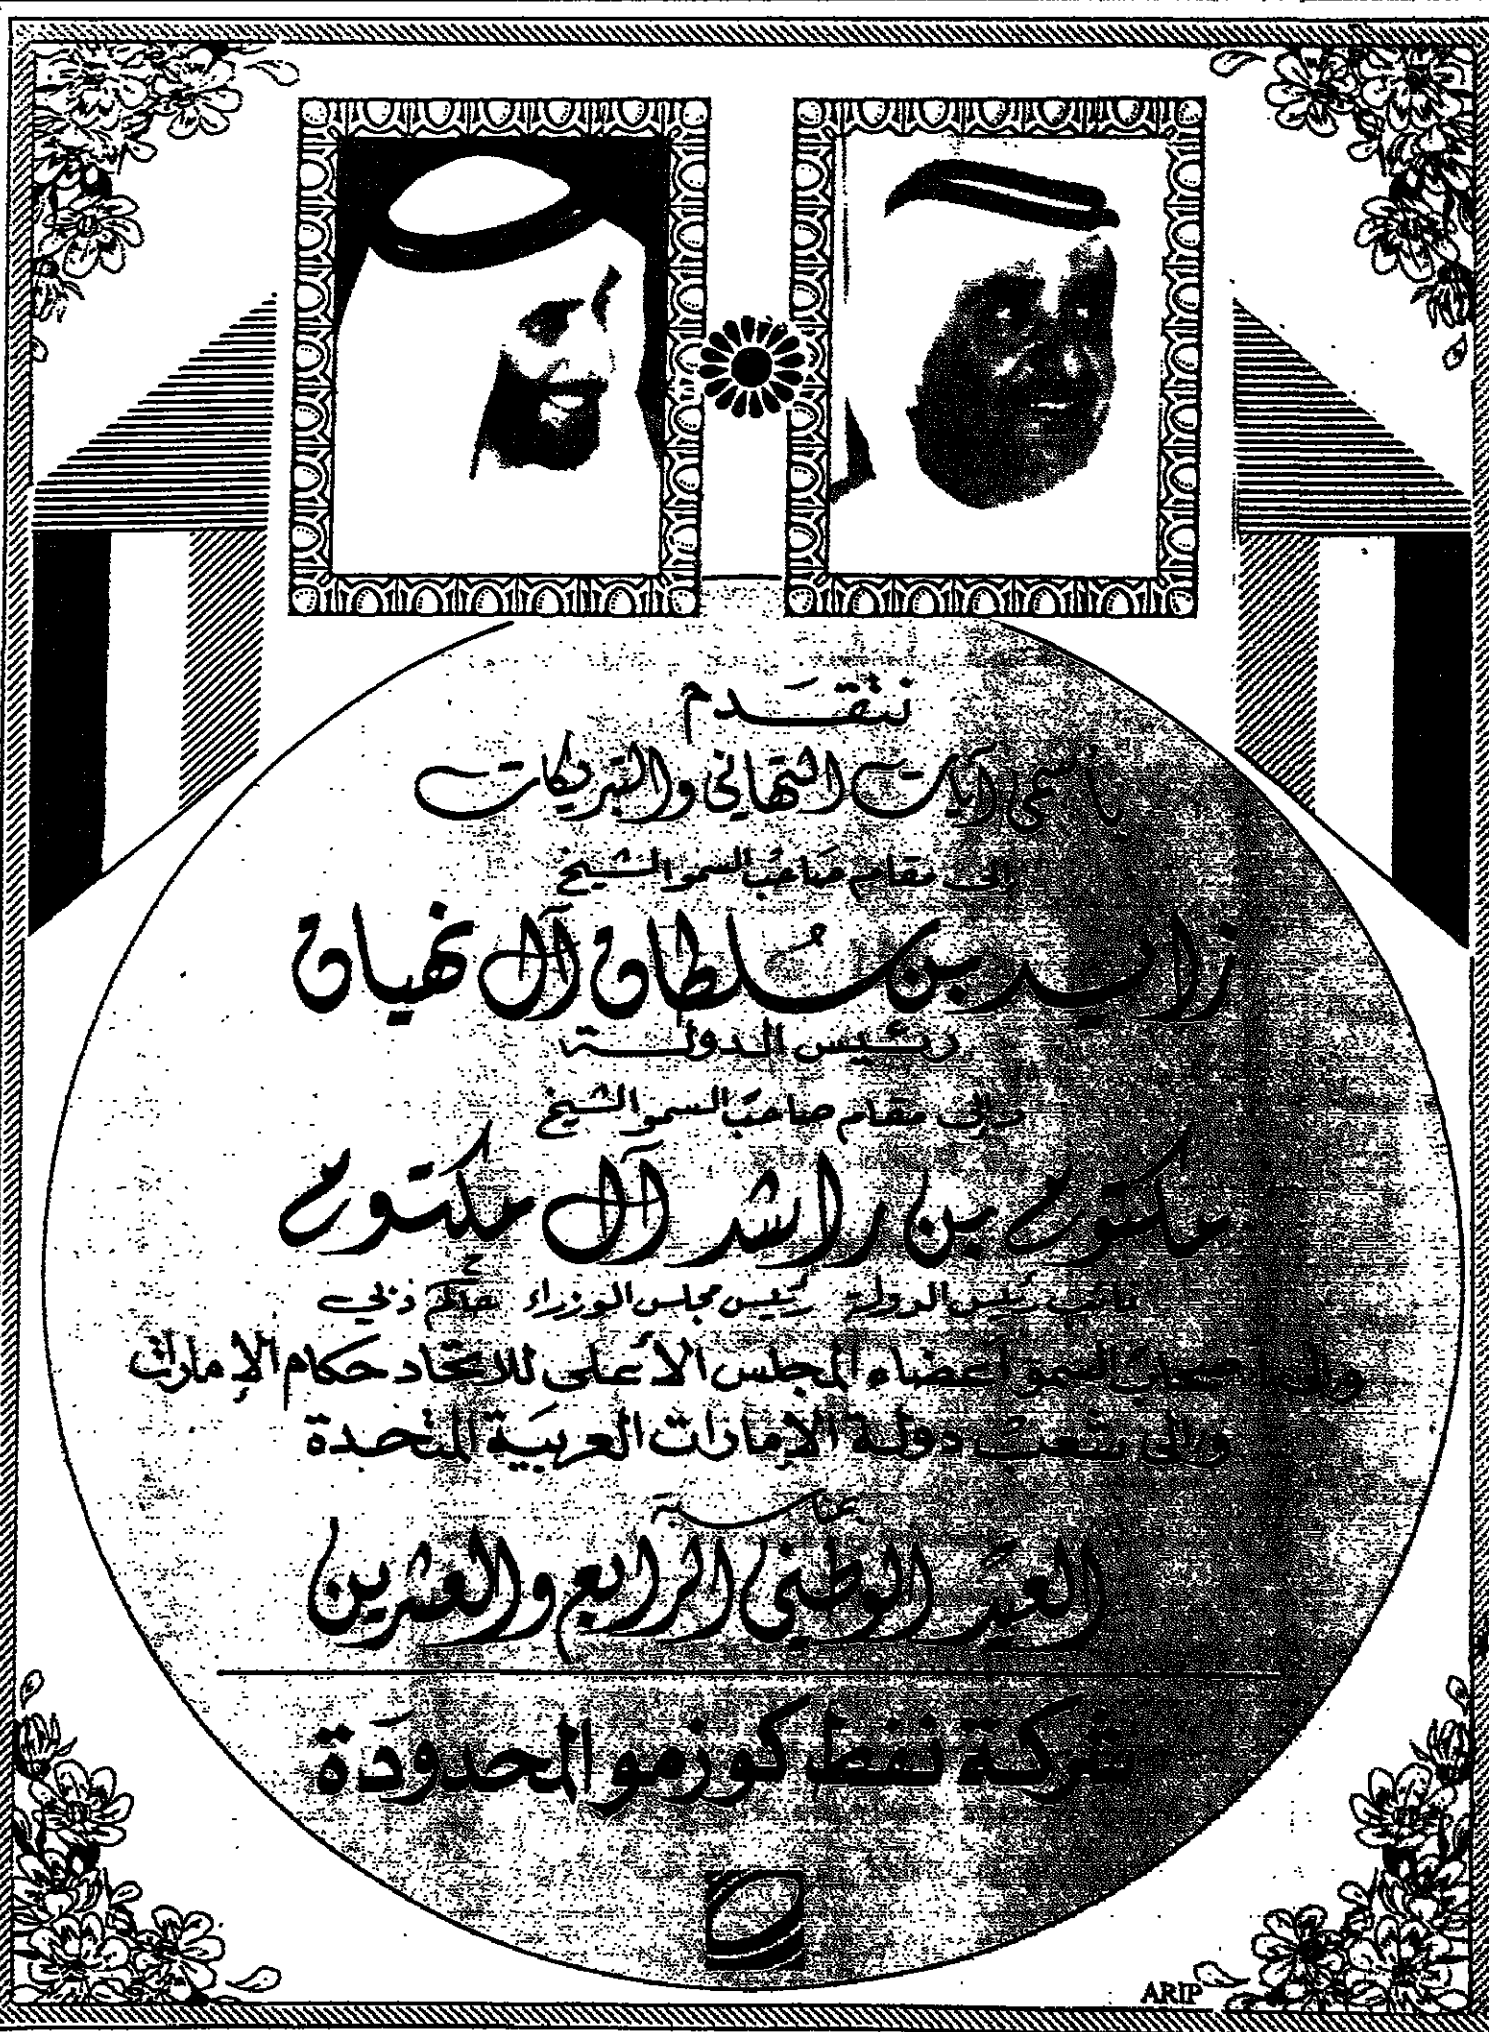 نتقدم
بأسمى آيات التهاني والتبريكات
إلى مقام صاحب السمو الشيخ
زايد بن سلطان آل نهيان
رئيس الدولة
وإلى مقام صاحب السمو الشيخ
مكتوم بن راشد آل مكتوم
نائب رئيس الدولة رئيس مجلس الوزراء حاكم دبي
وإلى أصحاب السمو أعضاء المجلس الأعلى للاتحاد حكام الإمارات
وإلى شعب دولة الإمارات العربية المتحدة
بمناسبة
العيد الوطني الرابع والعشرين
شركة نفط كوزمو المحدودة
ARIP